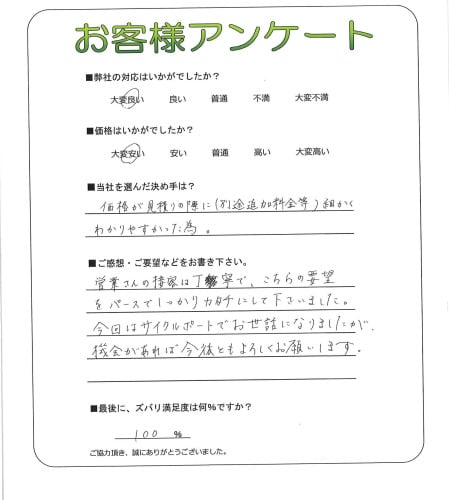 お客様アンケート
■弊社の対応はいかがでしたか？
大変良い 良い 普通 不満 大変不満
■価格はいかがでしたか？
大変安い 安い 普通 高い 大変高い
■当社を選んだ決め手は？
価格が見積りの際に(別途追加料金等)細かく
わかりやすかった為。
■ご感想・ご要望などをお書き下さい。
営業さんの接客は丁寧で、こちらの要望
をパースでしっかりカタチにして下さいました。
今回はサイクルポートでお世話になりましたが、
機会があれば今後ともよろしくお願いします。
■最後に、ズバリ満足度は何%ですか？
100 %
ご協力頂き、誠にありがとうございました。